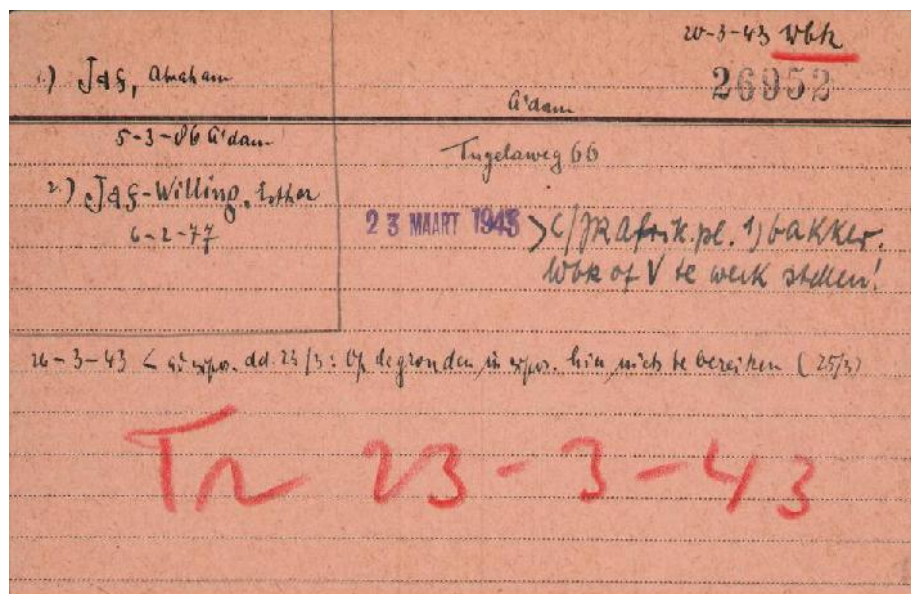 20-3-43 Wbk
26952
1.) Jas, Abraham
A'dam
5-3-86 A'dam
Tugelaweg 66
2.) Jas-Willing, Esther
6-2-77
23 MAART 1943 > C/JR Afrik.pl. 1) bakker.
Wbk of V te werk stellen!
26-3-43 < dd. 23/3: Op de gronden in hier niets te bereiken (25/3)
Tr 23-3-43